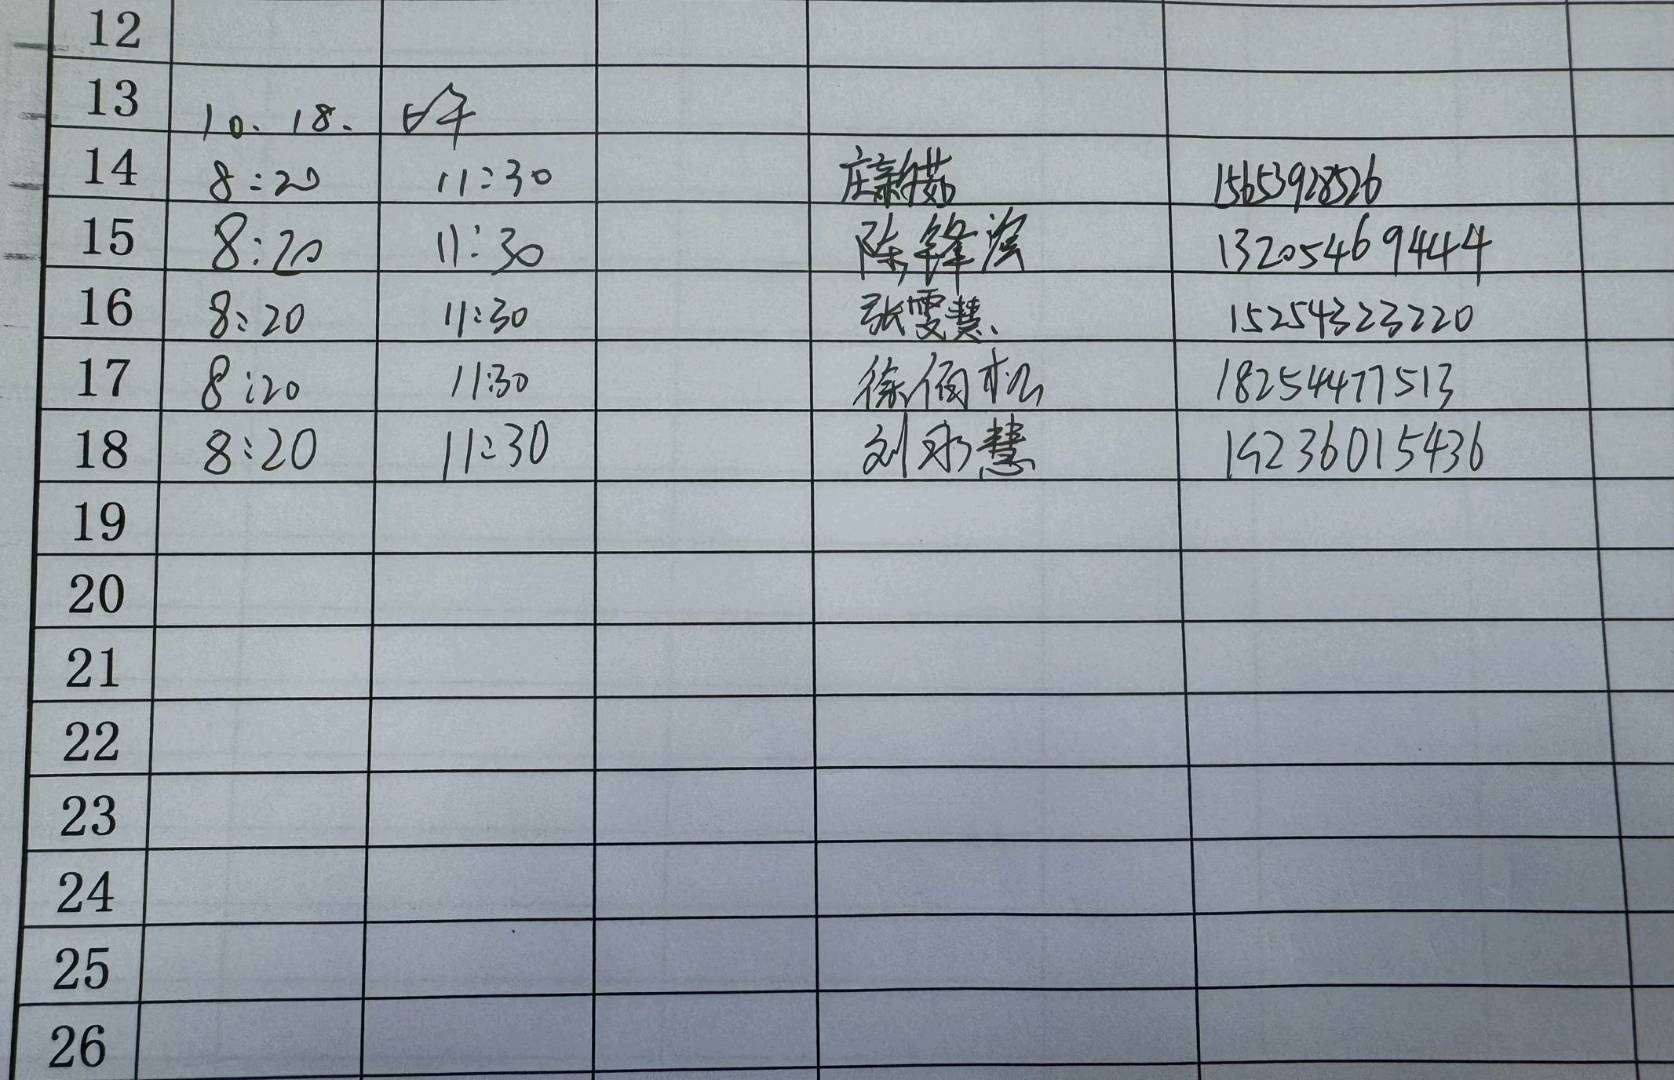 12
13 10. 18. 上午
14 8:20 11:30 庄新茹 15653928526
15 8:20 11:30 陈锋滨 13205469444
16 8:20 11:30 张雯慧 15254323220
17 8:20 11:30 徐佰松 18254477513
18 8:20 11:30 刘永慧 15236015436
19
20
21
22
23
24
25
26